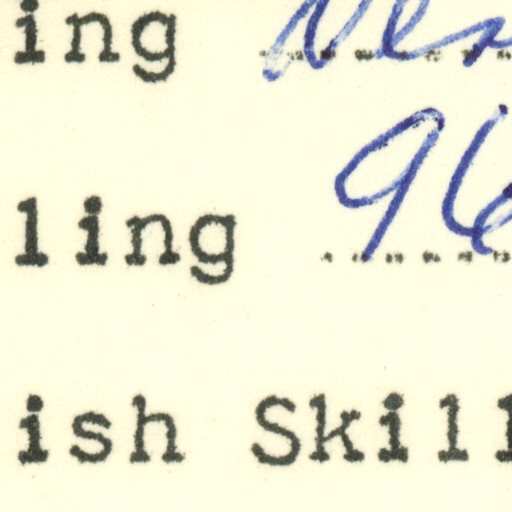 ing
ling 96
ish Skill